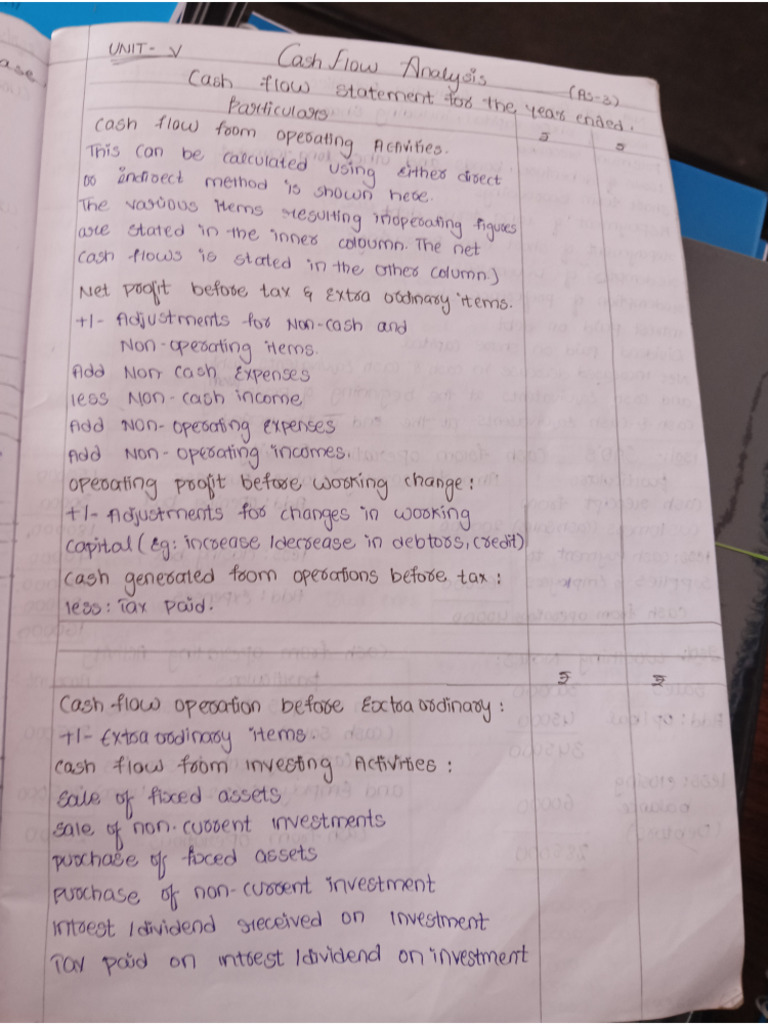 ase.
UNIT - V Cash flow Analysis
(AS-3)
Cash flow statement for the year ended.
Particulars ₹ ₹
Cash flow from operating Activities.
This can be calculated using either direct
or indirect method is shown here.
The various items resulting inoperating figures
are stated in the inner coloumn. The net
cash flows is stated in the other column)
Net profit before tax & Extra ordinary items.
+/- Adjustments for Non-cash and
Non-operating items.
Add Non cash Expenses
less Non-cash income
Add Non-operating expenses
Add Non-operating incomes.
operating profit before working change:
+/- Adjustments for changes in working
capital (Eg: increase /decrease in debtors, credit)
cash generated from operations before tax:
less: Tax paid.
₹ ₹
Cash flow operation before Extra ordinary:
+/- Extra ordinary items.
cash flow from investing Activities:
sale of fixed assets
sale of non-current investments
purchase of fixed assets
purchase of non-current investment
intrest /dividend received on investment
Tax paid on intrest /dividend on investment